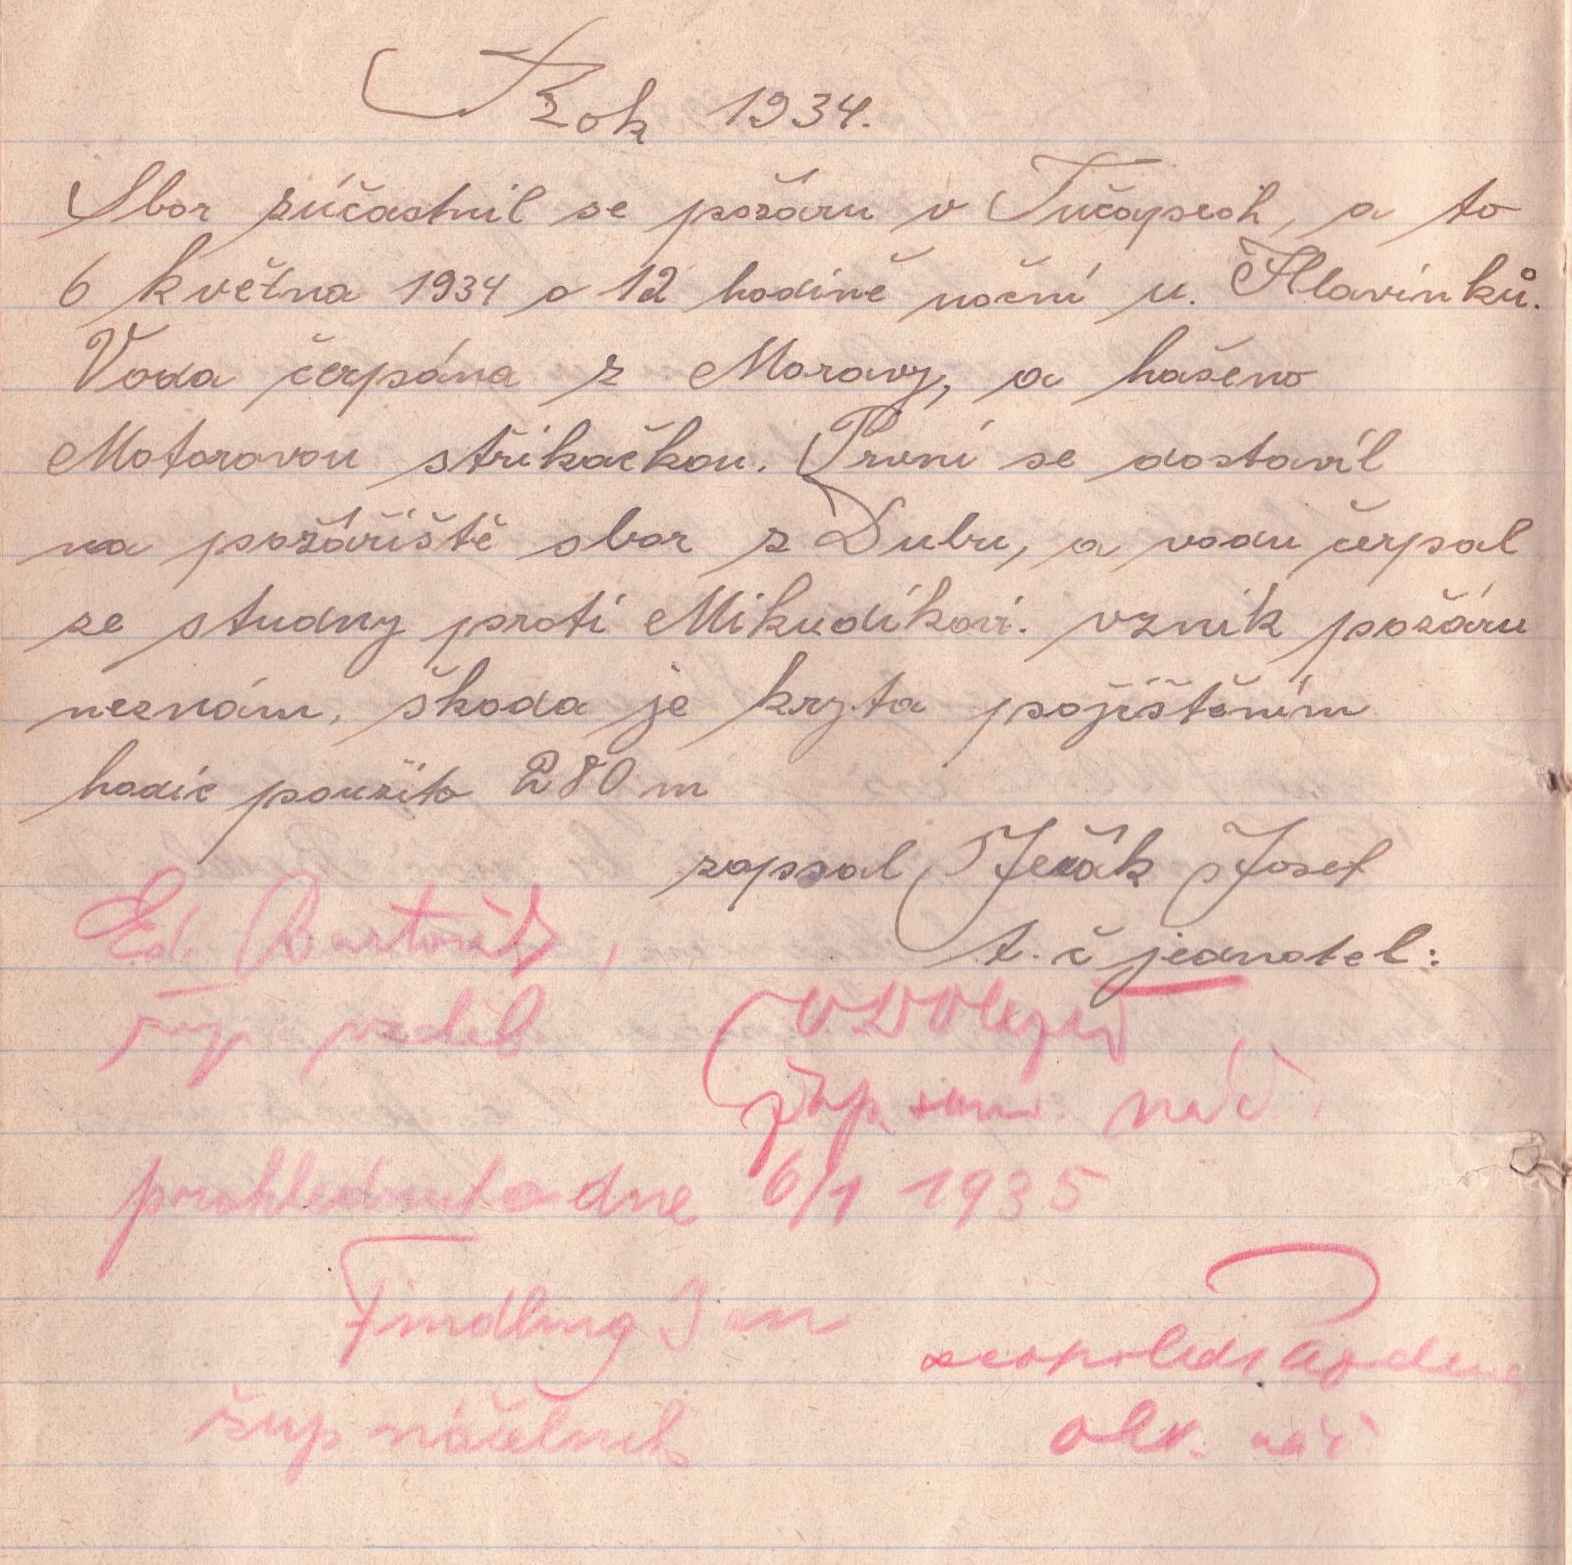 Rok 1934.
Sbor zúčastnil se požáru v Tučapech, a to
6 května 1934 o 12 hodině noční u. Hlavinků.
Voda čerpána z Moravy, a hašeno
Motorovou stříkačkou. První se dostavil
na požářiště sbor z Dubu, a vodu čerpal
ze studny proti Mikudíkovi. vznik požáru
neznám, škoda je kryta pojištěním
hadic použito 280 m
zapsal Ježák Josef
t. č jednatel:
Ed.
žup. vzděl.
žup. sam. náč.
prohlédnuto dne 6/1 1935
Findling Jan
žup náčelník
Leopold
okr. náč.